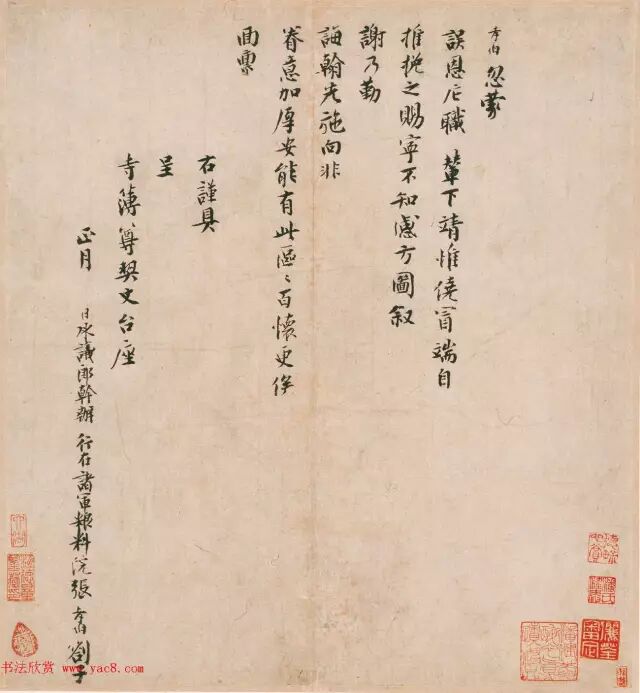 孝伯忽蒙
誤恩庀職 輦下靖惟僥冒端自
推挽之賜寧不知感方圖叙
謝乃勤
誨翰先施向非
眷意加厚安能有此區〻百懷更俟
面稟
右謹具
呈
寺簿尊契丈台座
正月 日承議郎幹辦 行在諸軍糧料院張 孝伯 劄子
书法欣赏 www.yac8.com